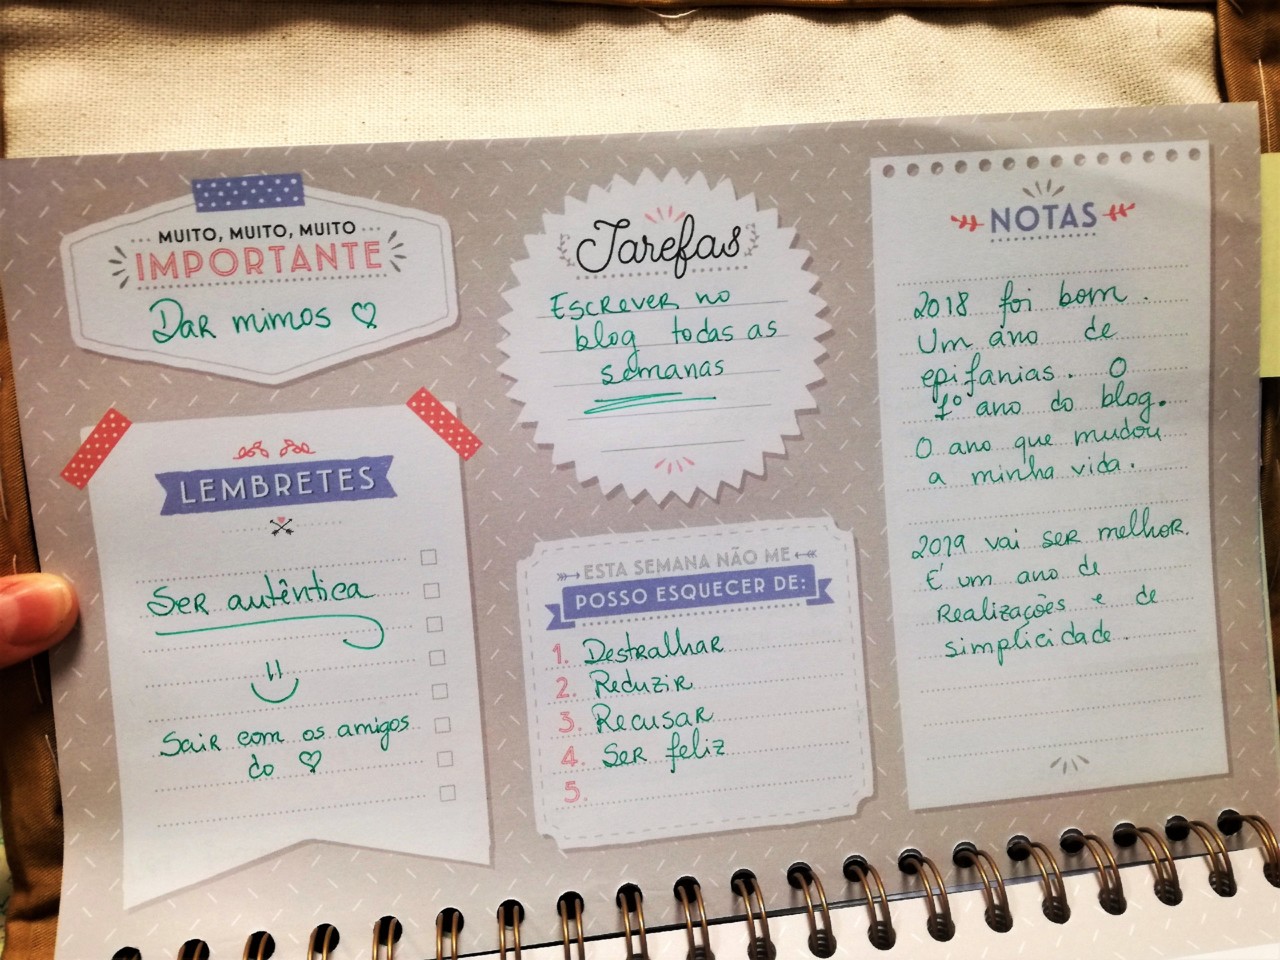 MUITO, MUITO, MUITO
IMPORTANTE
Dar mimos ♡
LEMBRETES
Ser autêntica
Sair com os amigos
do ♡
Tarefas
Escrever no
blog todas as
semanas
ESTA SEMANA NÃO ME
POSSO ESQUECER DE:
1. Destralhar
2. Reduzir
3. Recusar
4. Ser feliz
5.
NOTAS
2018 foi bom.
Um ano de
epifanias. O
1º ano do blog.
O ano que mudou
a minha vida.
2019 vai ser melhor.
É um ano de
Realizações e de
simplicidade.